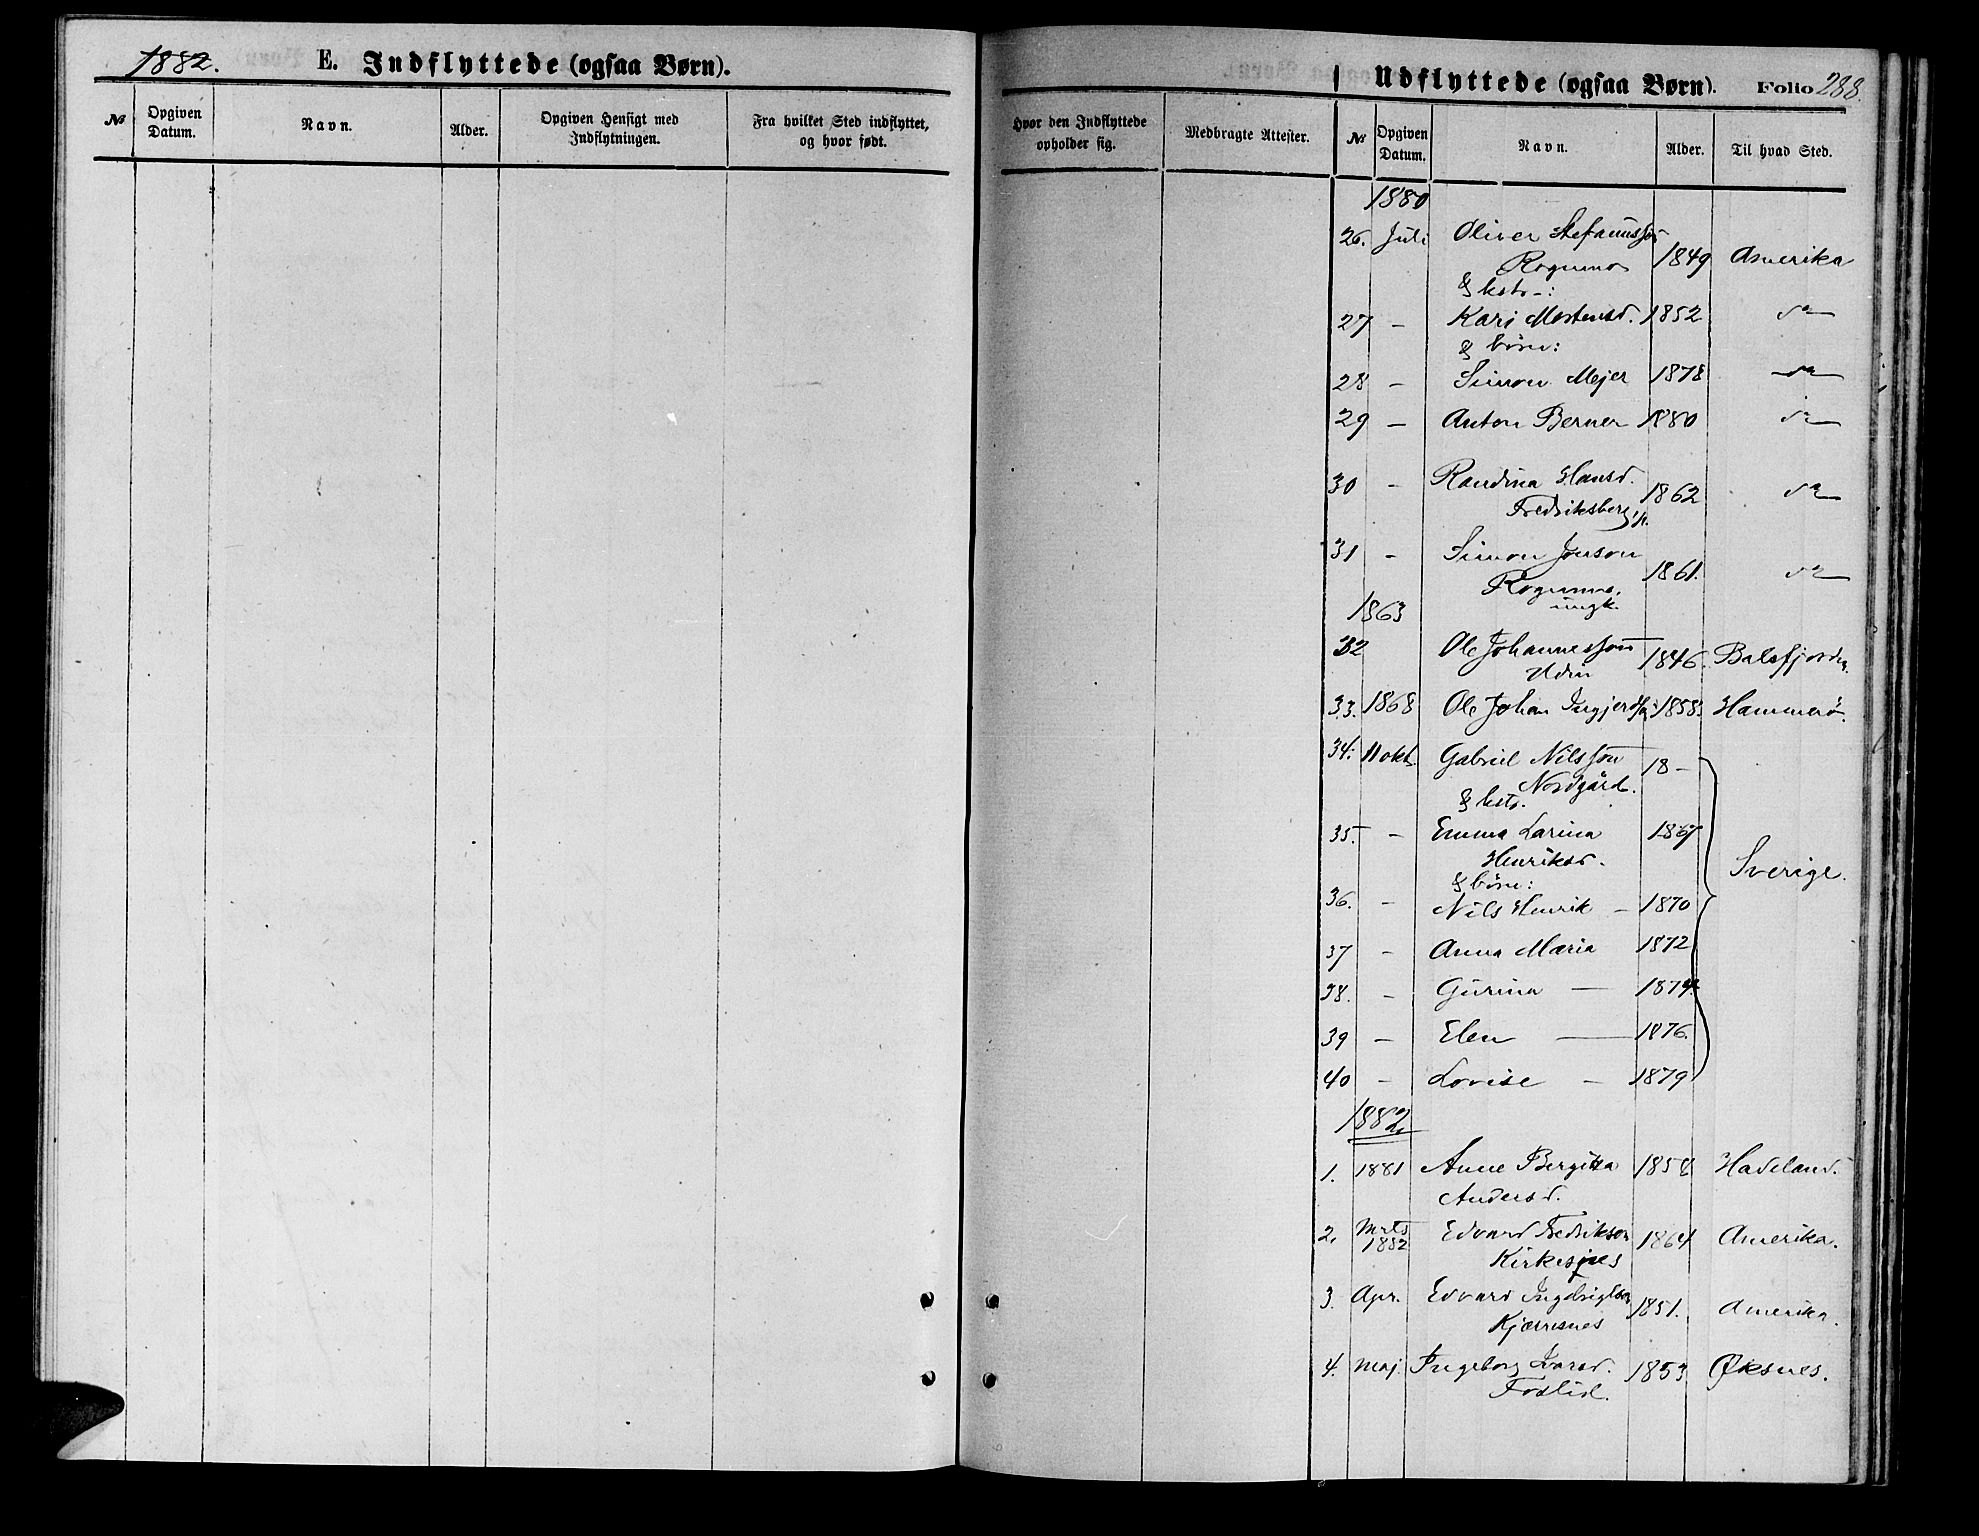 1882.
E. Indflyttede (ogsaa Børn).
№
Opgiven Datum.
Navn.
Alder.
Opgiven Hensigt med Indflytningen.
Fra hvilket Sted indflyttet, og hvor født.
Udflyttede (ogsaa Børn). Folio 288.
Hvor den Indflyttede opholder sig.
Medbragte Attester.
№
Opgiven Datum.
Navn.
Alder.
Til hvad Sted.
1880
26. Juli Oliver Stefanusson 1849 Amerika
Rognmo
& kstr-:
27 - Kari Mortensd. 1852 do
& börn:
28 - Simon Mejer 1878 do
29 - Anton Berner 1880 do
30 - Randina Hansd. 1862 do
Fredriksberg, p.
31 - Simon Jonson 1861. do
Rognmo,
ungk.
1863
32 Ole Johannesson 1846. Balsfjorden.
33. 1868 Ole Johan Ingjerds 1858 Hammerö.
34. 11 okt. Gabriel Nilsson 18-
Nordgård.
& kstr.
35. - Emma Larina 1867
Henriksd.
& börn:
36. - Nils Henrik - 1870
Sverige.
37 - Anna Maria 1872
38. - Gurina - 1874
39 - Elen - 1876.
40 - Lovise - 1879
1882
1. 1881 Anne Bergitta 1858 Hadeland.
Andersd.
2. Mrts 1882 Edvard Fredrikson 1864 Amerika.
Kirkesnes
3. Apr. Edvard Ingebrigtson 1851. Amerika.
Kjærresnes
4. Maj. Ingeborg Larsd. 1853 Øksnes.
Foslid.